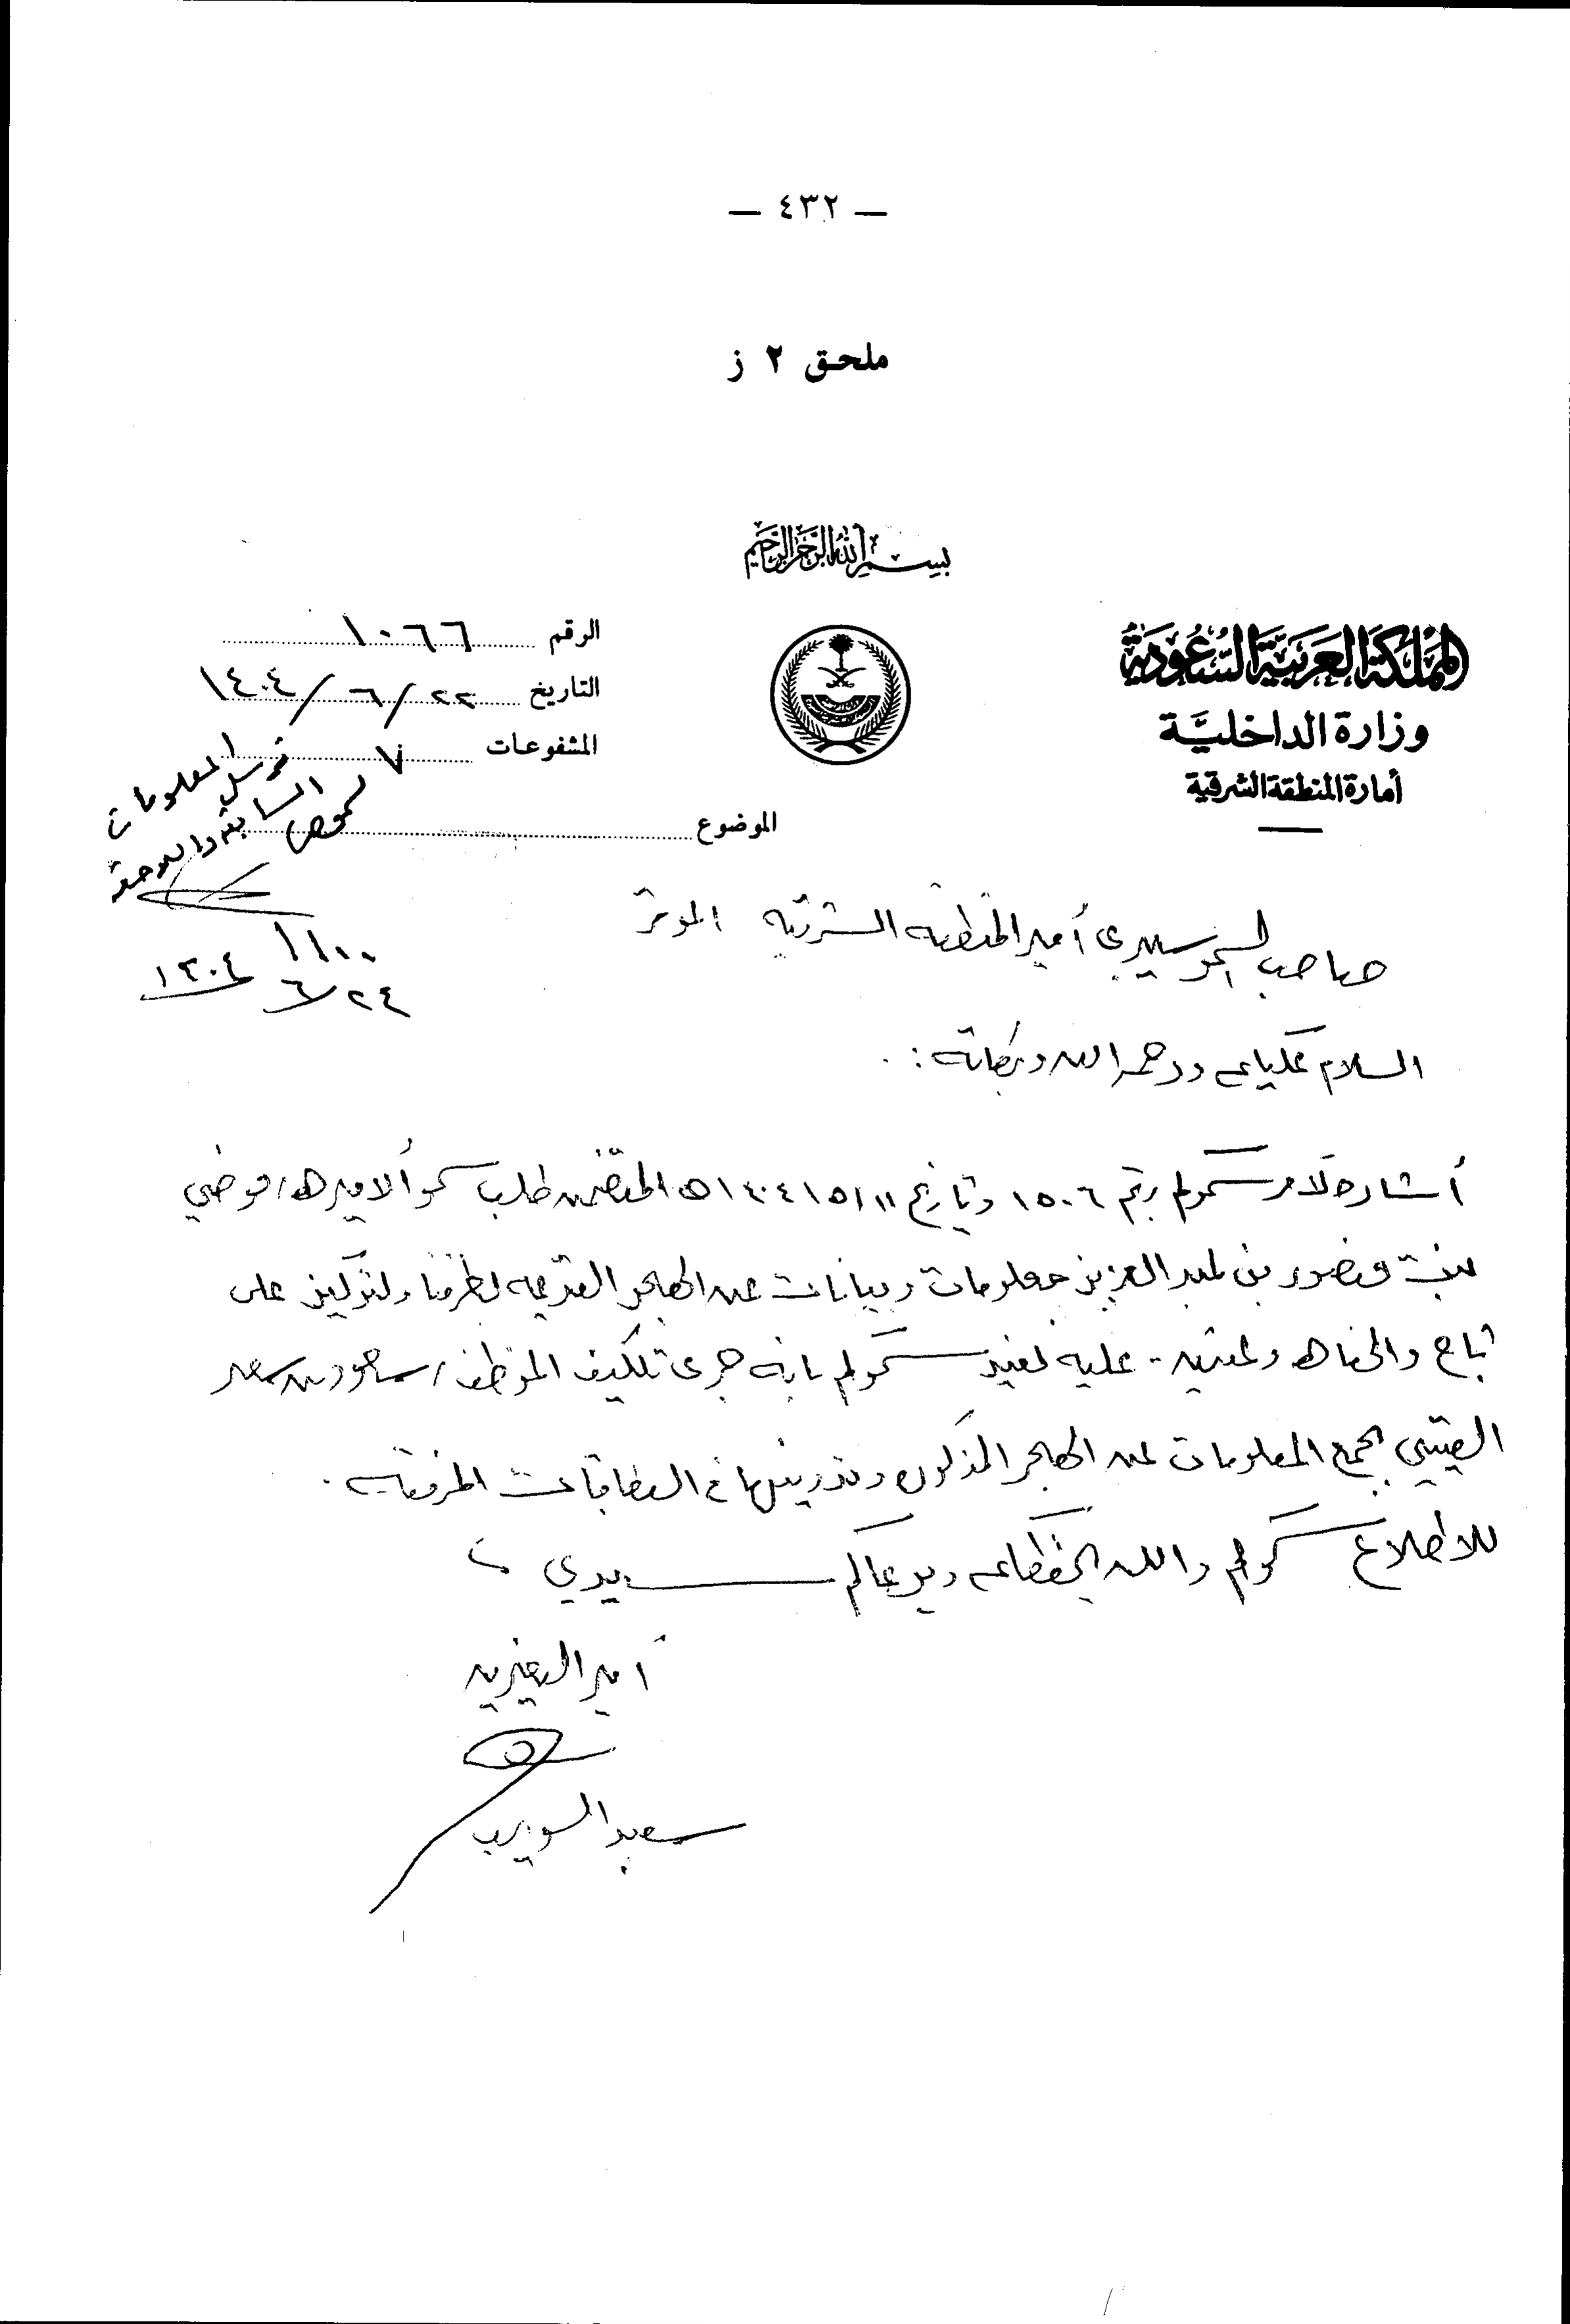 — ٤٣٢ —
ملحق ٢ ز
بسم الله الرحمن الرحيم
المملكة العربية السعودية
وزارة الداخلية
أمارة المنطقة الشرقية
الرقم ١٠٦٦
التاريخ ٢٢/٦/١٤٠٤
المشفوعات ٧
الموضوع
المعلومات
السابقة
٢٤/٦
صاحب السمو سيدي أمير المنطقة الشرقية الموقر
السلام عليكم ورحمة الله وبركاته :.
أشارة لأمر سموكم رقم ١٥٠٦ وتاريخ ١٤٠٤/٥/١١ه المتضمن طلب سمو ألاميره/ موضي
بنت منصور بن عبد العزيز معلومات وبيانات عن الهجر القديمه بطرفنا ولتركيز على
ثاج والحناه وعتيق . عليه نفيد سموكم بانه جرى تكليف الموظف/ سعود بن سعد
العتيبي بجمع المعلومات عن الهجر المذكوره وتدوينها في البطاقات المرفقه .
للاطلاع سموكم والله يحفظكم ويرعاكم سيدي
أمير النعيريه
سعد السويب